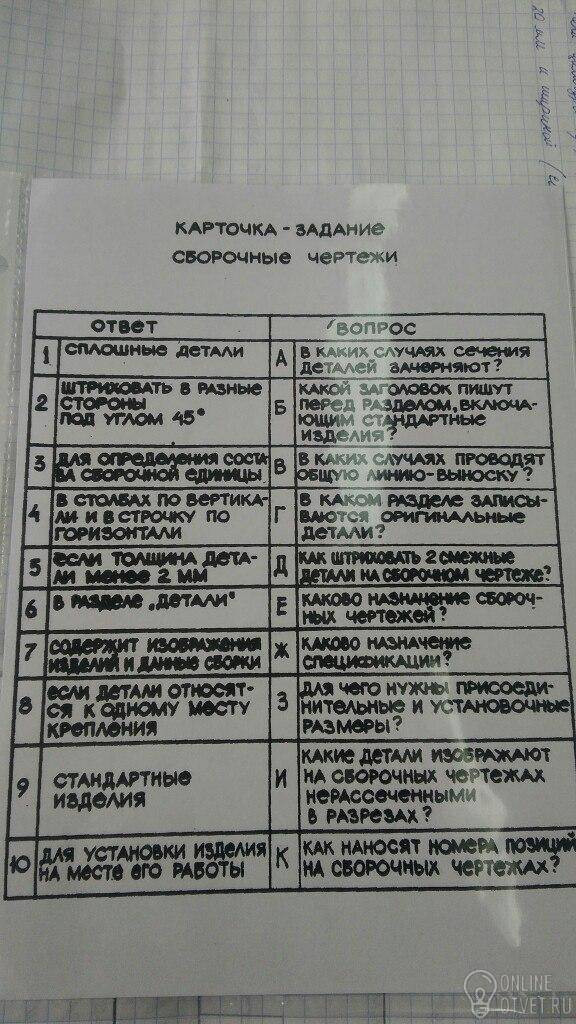 20 мм и шириной (
КАРТОЧКА - ЗАДАНИЕ
СБОРОЧНЫЕ ЧЕРТЕЖИ
ОТВЕТ
ВОПРОС
1
СПЛОШНЫЕ ДЕТАЛИ
А
В КАКИХ СЛУЧАЯХ СЕЧЕНИЯ
ДЕТАЛЕЙ ЗАЧЕРНЯЮТ?
2
ШТРИХОВАТЬ В РАЗНЫЕ
СТОРОНЫ
ПОД УГЛОМ 45°
Б
КАКОЙ ЗАГОЛОВОК ПИШУТ
ПЕРЕД РАЗДЕЛОМ, ВКЛЮЧА-
ЮЩИМ СТАНДАРТНЫЕ
ИЗДЕЛИЯ?
3
ДЛЯ ОПРЕДЕЛЕНИЯ СОСТА
ВА СБОРОЧНОЙ ЕДИНИЦЫ
В
В КАКИХ СЛУЧАЯХ ПРОВОДЯТ
ОБЩУЮ ЛИНИЮ-ВЫНОСКУ?
4
В СТОЛБАХ ПО ВЕРТИКА-
ЛИ И В СТРОЧКУ ПО
ГОРИЗОНТАЛИ
Г
В КАКОМ РАЗДЕЛЕ ЗАПИСЫ-
ВАЮТСЯ ОРИГИНАЛЬНЫЕ
ДЕТАЛИ?
5
ЕСЛИ ТОЛЩИНА ДЕТА-
ЛИ МЕНЕЕ 2 ММ
Д
КАК ШТРИХОВАТЬ 2 СМЕЖНЫЕ
ДЕТАЛИ НА СБОРОЧНОМ ЧЕРТЕЖЕ?
6
В РАЗДЕЛЕ „ДЕТАЛИ"
Е
КАКОВО НАЗНАЧЕНИЕ СБОРОЧ-
НЫХ ЧЕРТЕЖЕЙ?
7
СОДЕРЖИТ ИЗОБРАЖЕНИЯ
ИЗДЕЛИЙ И ДАННЫЕ СБОРКИ
Ж
КАКОВО НАЗНАЧЕНИЕ
СПЕЦИФИКАЦИИ?
8
ЕСЛИ ДЕТАЛИ ОТНОСЯТ-
СЯ К ОДНОМУ МЕСТУ
КРЕПЛЕНИЯ
З
ДЛЯ ЧЕГО НУЖНЫ ПРИСОЕДИ-
НИТЕЛЬНЫЕ И УСТАНОВОЧНЫЕ
РАЗМЕРЫ?
9
СТАНДАРТНЫЕ
ИЗДЕЛИЯ
И
КАКИЕ ДЕТАЛИ ИЗОБРАЖАЮТ
НА СБОРОЧНЫХ ЧЕРТЕЖАХ
НЕРАССЕЧЕННЫМИ
В РАЗРЕЗАХ?
10
ДЛЯ УСТАНОВКИ ИЗДЕЛИЯ
НА МЕСТЕ ЕГО РАБОТЫ
К
КАК НАНОСЯТ НОМЕРА ПОЗИЦИЙ
НА СБОРОЧНЫХ ЧЕРТЕЖАХ?
ONLINE
OTVET.RU